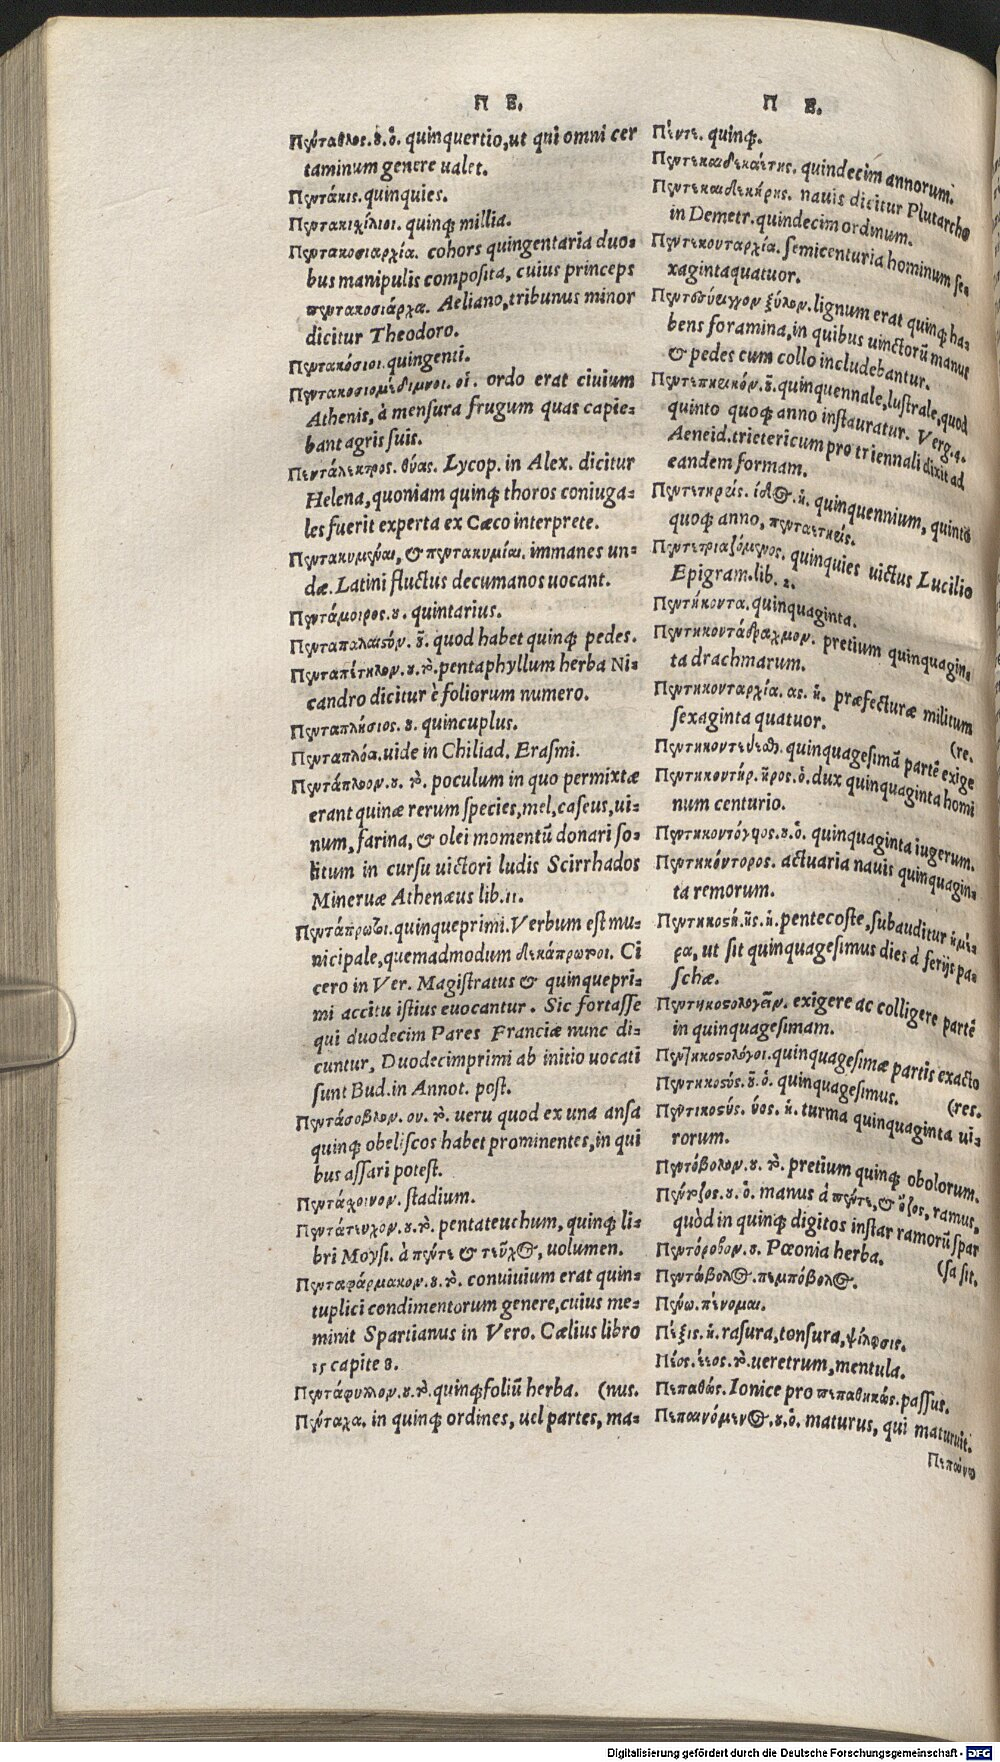 Π Ε.
Πένταθλος.ȣ.ὁ. quinquertio,ut qui omni cer
taminum genere ualet.
Πεντάκις.quinquies.
Πεντακιχίλιοι. quinq; millia.
Πεντακοσιαρχία. cohors quingentaria duo=
bus manipulis composita, cuius princeps
πεντακοσιάρχα. Aeliano,tribunus minor
dicitur Theodoro.
Πεντακόσιοι.quingenti.
Πεντακοσιομέδιμνοι. οἱ. ordo erat ciuium
Athenis, à mensura frugum quas capie=
bant agris suis.
Πεντάλεκτρος. θύας. Lycop. in Alex. dicitur
Helena,quoniam quinq; thoros coniuga=
les fuerit experta ex Cæco interprete.
Πεντακυμεναι, & πεντακυμίαι. immanes un=
dæ. Latini fluctus decumanos uocant.
Πεντάμοιρος.ȣ. quintarius.
Πενταπαλαιςόν. ȣ. quod habet quinq; pedes.
Πενταπέτηλον.ȣ.τὸ.pentaphyllum herba Ni=
candro dicitur è foliorum numero.
Πενταπλήσιος. ȣ. quincuplus.
Πενταπλόα.uide in Chiliad. Erasmi.
Πεντάπλοον.ȣ. τὸ. poculum in quo permixtæ
erant quinæ rerum species,mel,caseus,ui=
num, farina, & olei momentũ donari so=
litum in cursu uictori ludis Scirrhados
Mineruæ Athenæus lib.11.
Πεντάπρωτοι.quinqueprimi.Verbum est mu=
nicipale,quemadmodum δεκάπρωτοι. Ci
cero in Ver. Magistratus & quinquepri=
mi accitu istius euocantur. Sic fortasse
qui duodecim Pares Franciæ nunc di=
cuntur, Duodecimprimi ab initio uocati
sunt Bud.in Annot. post.
Πεντάσοβλον. ου. τὸ. ueru quod ex una ansa
quinq; obeliscos habet prominentes,in qui
bus assari potest.
Πεντάχοινον. stadium.
Πεντάτευχον.ȣ.τὸ. pentateuchum, quinq; li=
bri Moysi. ἀ πέντε & τεῦχος, uolumen.
Πενταφάρμακον.ȣ.τὸ. conuiuium erat quin=
tuplici condimentorum genere,cuius me=
minit Spartianus in Vero. Cælius libro
15 capite 8.
Πεντάφυλλον.ȣ.τὸ.quinq;foliũ herba. (nus.
Πένταχα. in quinq; ordines, uel partes, ma=
Π Ε.
Πέντε. quinq;.
Πεντεκαιδεκαέτης. quindecim annorum.
Πεντεκαιδεκήρης. nauis dicitur Plutarcho
in Demetr.quindecim ordinum.
Πεντεκονταρχία. semicenturia hominum se=
xagintaquatuor.
Πεντεσύριγγον ξύλον.lignum erat quinq; ha=
bens foramina,in quibus uinctorũ manus
& pedes cum collo includebantur.
Πεντετηρικόν.ȣ.quinquennale,lustrale,quod
quinto quoq; anno instauratur. Verg.4.
Aeneid.trietericum pro triennali dixit ad
eandem formam.
Πεντετηρίς. ίδος. ἡ. quinquennium, quinto
quoq; anno, πενταετηρίς.
Πεντετριαζόμενος. quinquies uictus Lucilio
Epigram.lib. 2.
Πεντήκοντα.quinquaginta.
Πεντηκοντάδραχμον. pretium quinquagin=
ta drachmarum.
Πεντηκονταρχία. ας. ἡ. præfecturæ militum
sexaginta quatuor. (re.
quinquagesimã partẽ exige
Πεντηκοντήρ. ῆρος.ὁ.dux quinquaginta homi
num centurio.
Πεντηκοντόγυος.ȣ.ὁ. quinquaginta iugerum.
Πεντηκόντορος. actuaria nauis quinquagin=
ta remorum.
Πεντηκοςή.ῆς.ἡ.pentecoste,subauditur ἡμέ=
ρα, ut sit quinquagesimus dies à ferijs pa=
schæ.
Πεντηκοςολογεῖν. exigere ac colligere partẽ
in quinquagesimam.
Πεντηκοςολόγοι.quinquagesimæ partis exacto
Πεντηκοςός.ȣ.ὁ. quinquagesimus. (res.
Πεντικοςύς. ύος. ἡ. turma quinquaginta ui=
rorum.
Πεντόβολον.ȣ. τὸ. pretium quinq; obolorum.
Πέντοζος.ȣ. ὁ. manus à πέντε, & ὄζος, ramus,
quòd in quinq; digitos instar ramorũ spar
Πεντόροβον.ȣ. Pæonia herba. (sa sit.
Πεντώβολος.πεμπόβολος.
Πένω.πένομαι.
Πέξις.ἡ.rasura,tonsura,ψίλωσις.
Πέος.έεος.τὸ.ueretrum,mentula.
Πεπαθώς. Ionice pro πεπαθηκώς.passus.
Πεπαινόμενος.ȣ.ὁ. maturus, qui maturuit.
Πεπαίνω